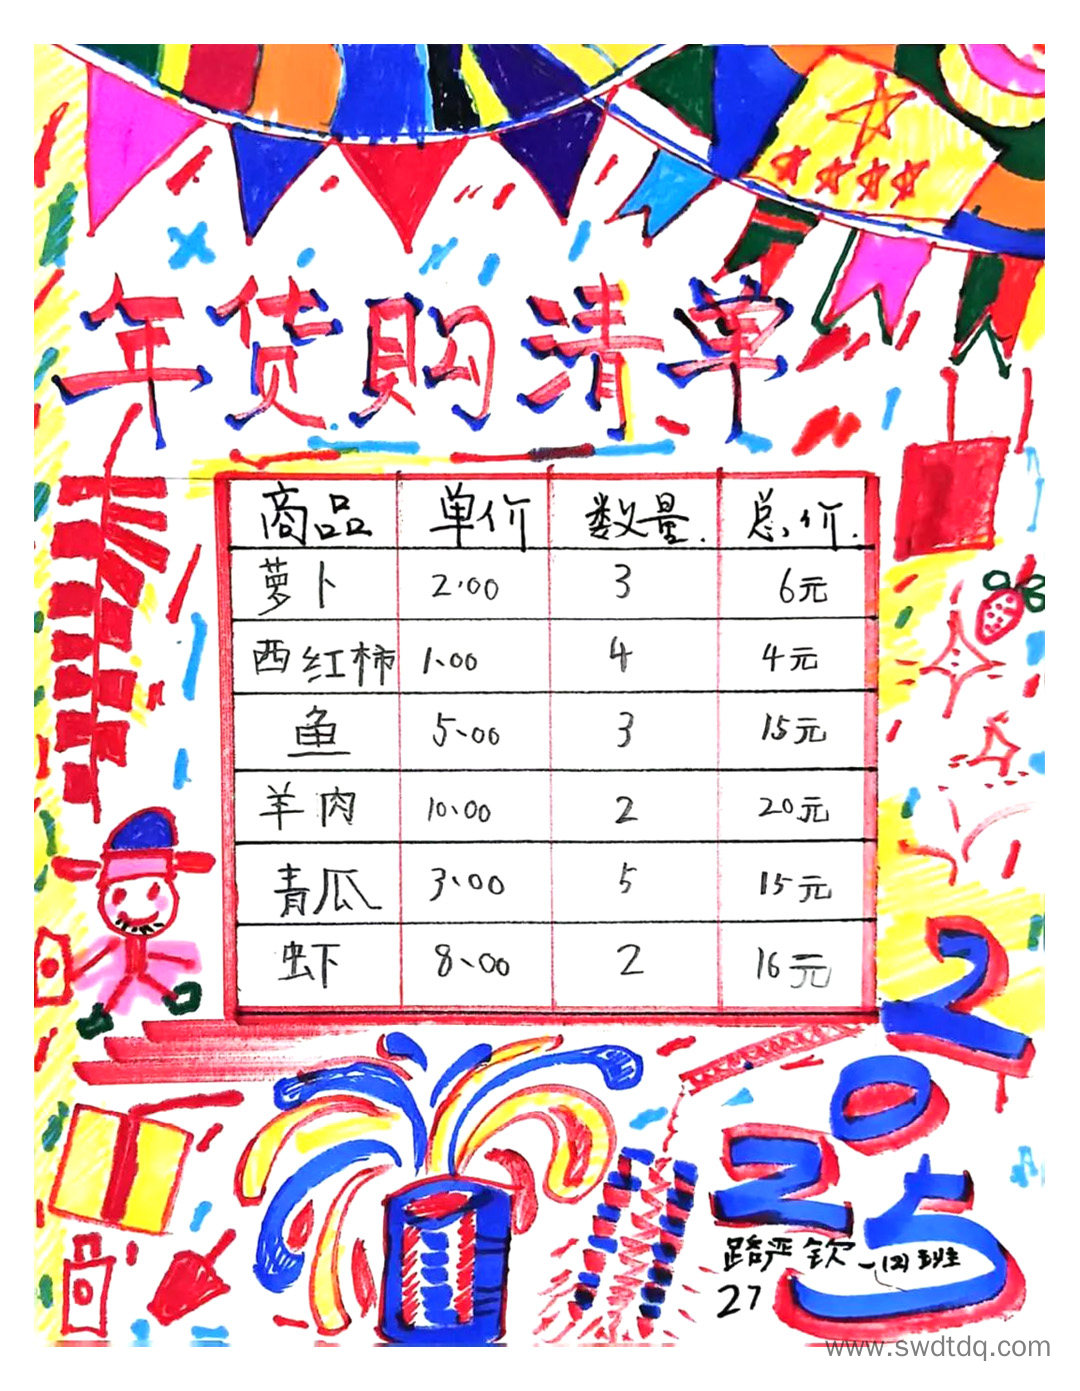 年货购清单
商品 单价 数量. 总价.
萝卜 2.00 3 6元
西红柿 1.00 4 4元
鱼 5.00 3 15元
羊肉 10.00 2 20元
青瓜 3.00 5 15元
虾 8.00 2 16元
2025
路严钦 一(2)班
27
www.swdtdq.com